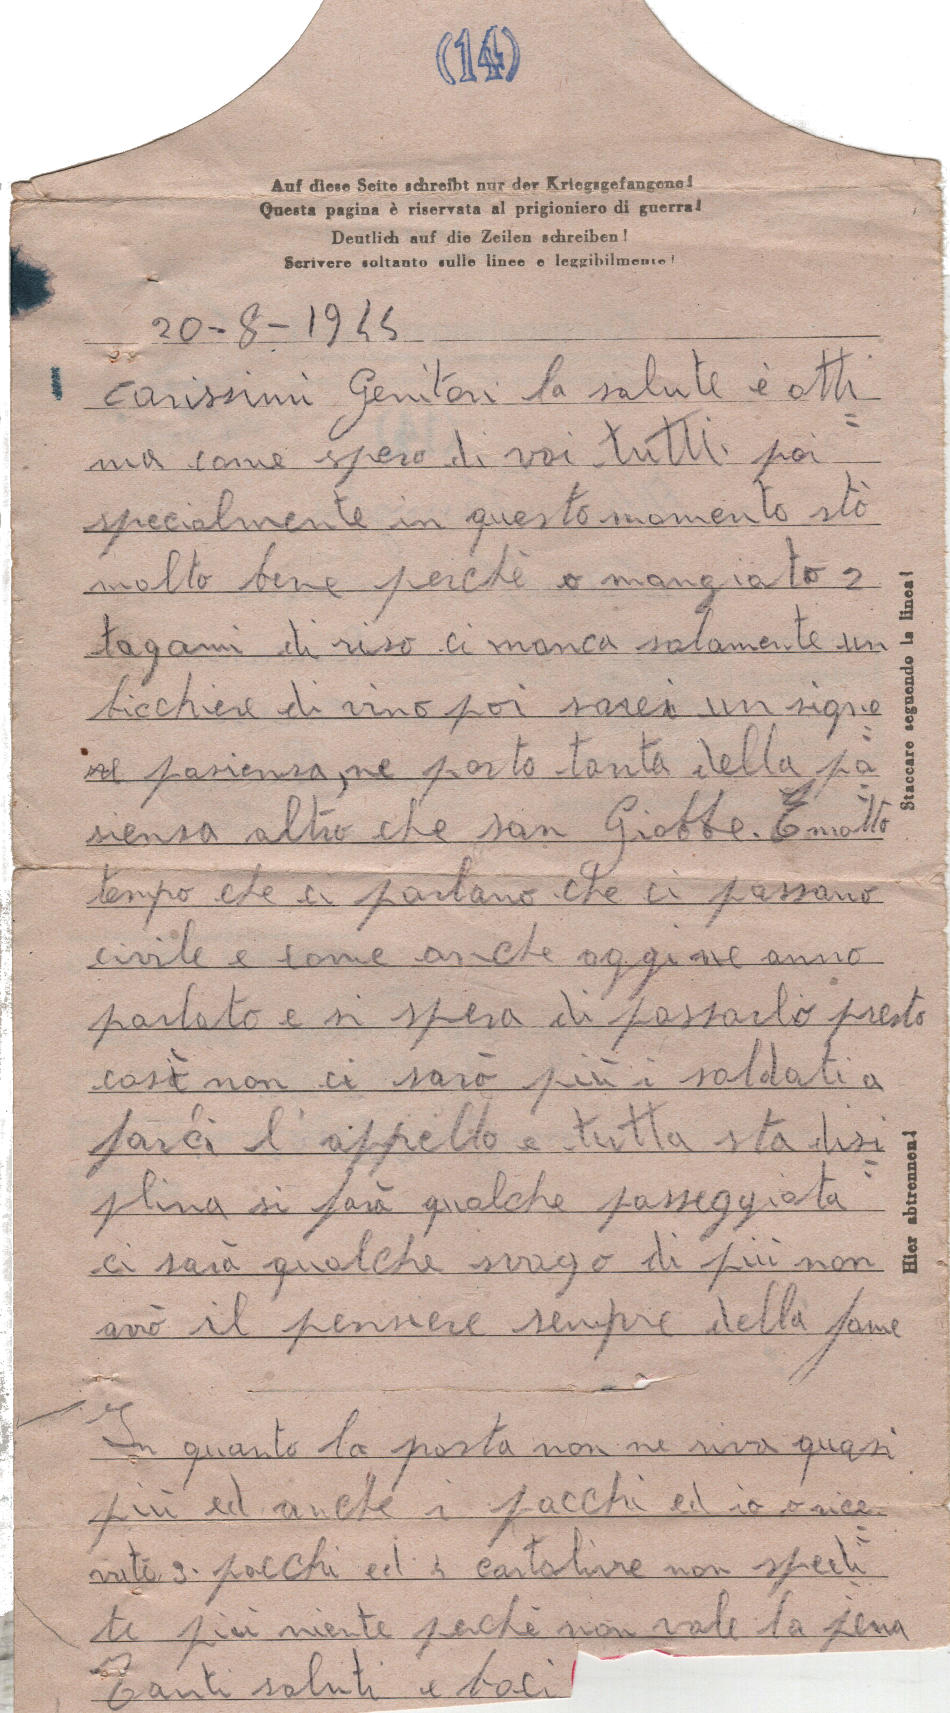 (14)
Auf diese Seite schreibt nur der Kriegsgefangene!
Questa pagina è riservata al prigioniero di guerra!
Deutlich auf die Zeilen schreiben!
Scrivere soltanto sulle linee e leggibilmente!
20-8-1944
Carissimi Genitori la salute è otti
ma come spero di voi tutti. poi
specialmente in questo momento stò
molto bene perchè o mangiato 2
tagami di riso ci manca solamente un
bicchiere di vino poi sarei un signo=
re pasiensa, ne porto tanta della pa=
siensa altro che san Giobbe. È molto
tempo che ci parlano che ci passano
civile e come anche oggi ne anno
parlato e si spera di passarlo presto
così non ci sarò più i soldati a
farci l'appello e tutta sta disi=
plina si farà qualche passeggiata
ci sarà qualche svago di più non
avrò il pensiere sempre della fame
In quanto la posta non ne riva quasi
più ed anche i pacchi ed io o rice=
vuto 3. pacchi ed 4 cartoline non spedi=
te più niente perchè non vale la pena
Tanti saluti e baci
Staccare seguendo la linea!
Hier abtrennen!